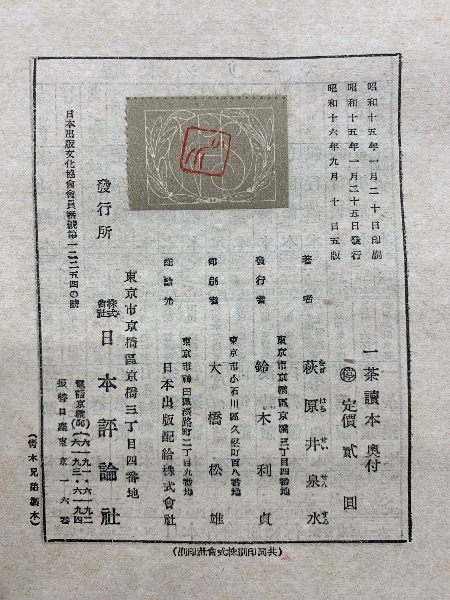 昭和十五年一月二十日印刷
昭和十五年一月二十五日發行
昭和十六年九月十日五版
一茶讀本 奥付
停 定價貳圓
著者 萩原井泉水
はぎ はら せい せん すゐ
東京市京橋區京橋三丁目四番地
發行者 鈴木利貞
東京市小石川區久堅町百八番地
印刷者 大橋松雄
東京市神田區淡路町二丁目九番地
配給元 日本出版配給株式會社
東京市京橋區京橋三丁目四番地
發行所 株式會社 日本評論社
電話京橋(56)
六一九一・六一九二
六一九三・六一九四
振替口座東京一六番
日本出版文化協會會員番號第一二二五四〇號
(共同印刷株式會社印刷)
(青木兄弟製本)